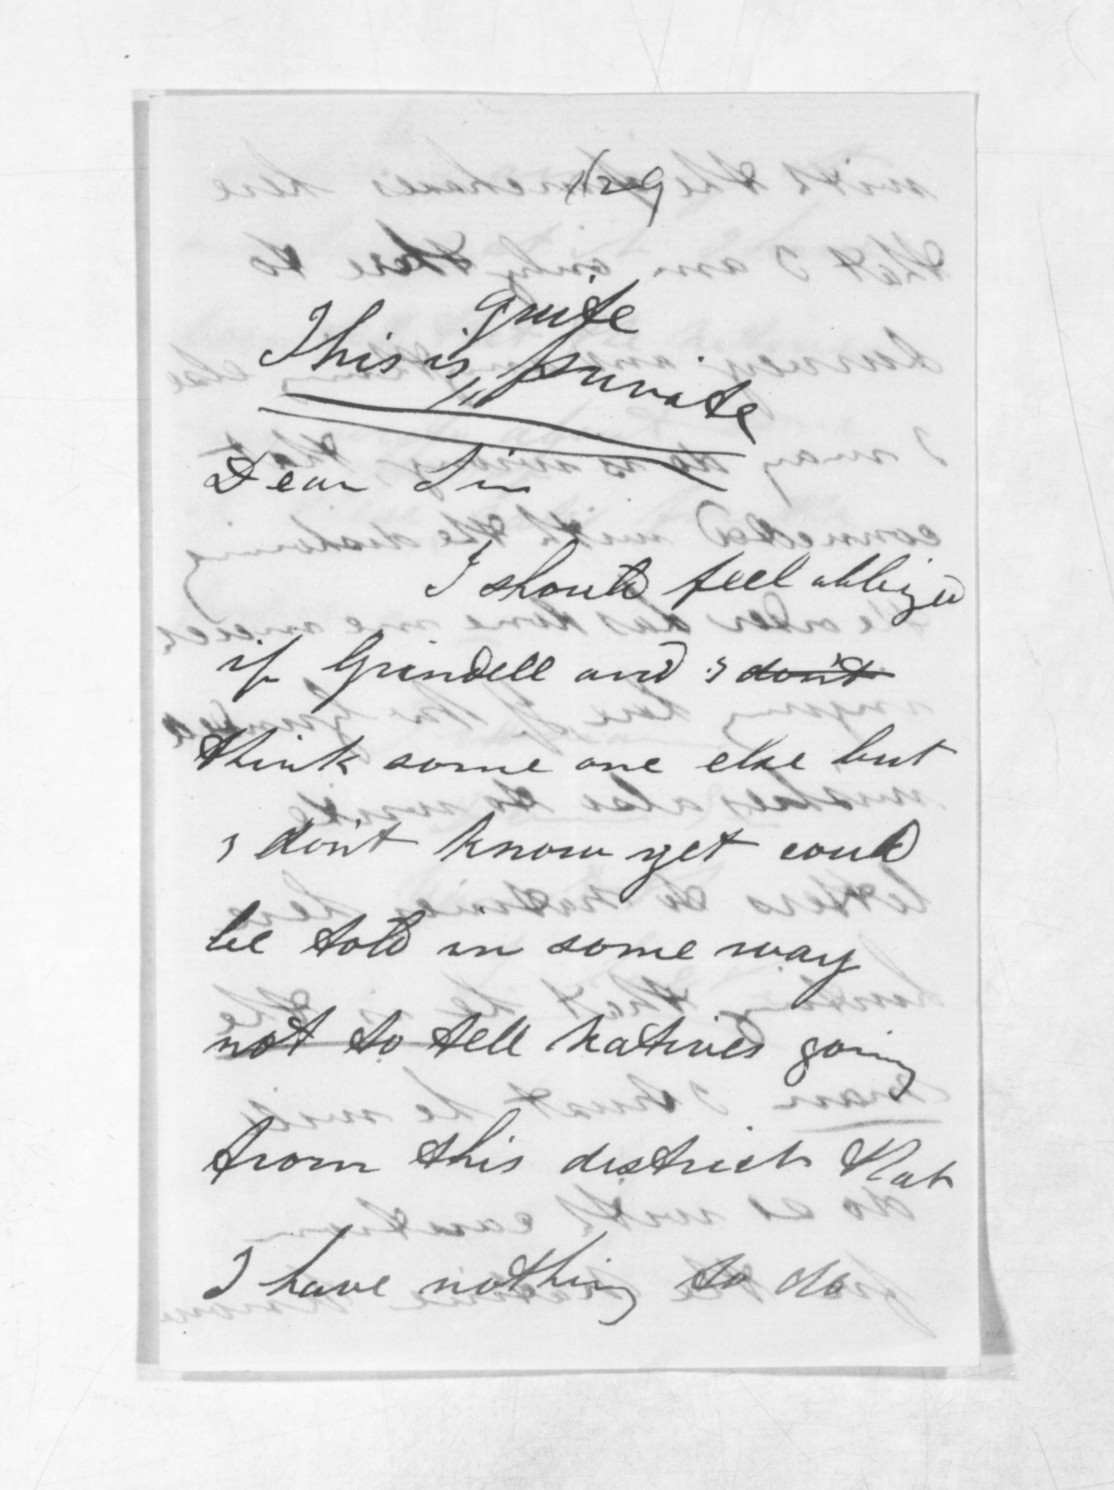 129
quite
This is private
Dear Sir
I should feel obliged
if Grindell and I don't
think some one else but
I don't know yet could
be told in some way
not to tell Natives going
from this district that
I have nothing to do